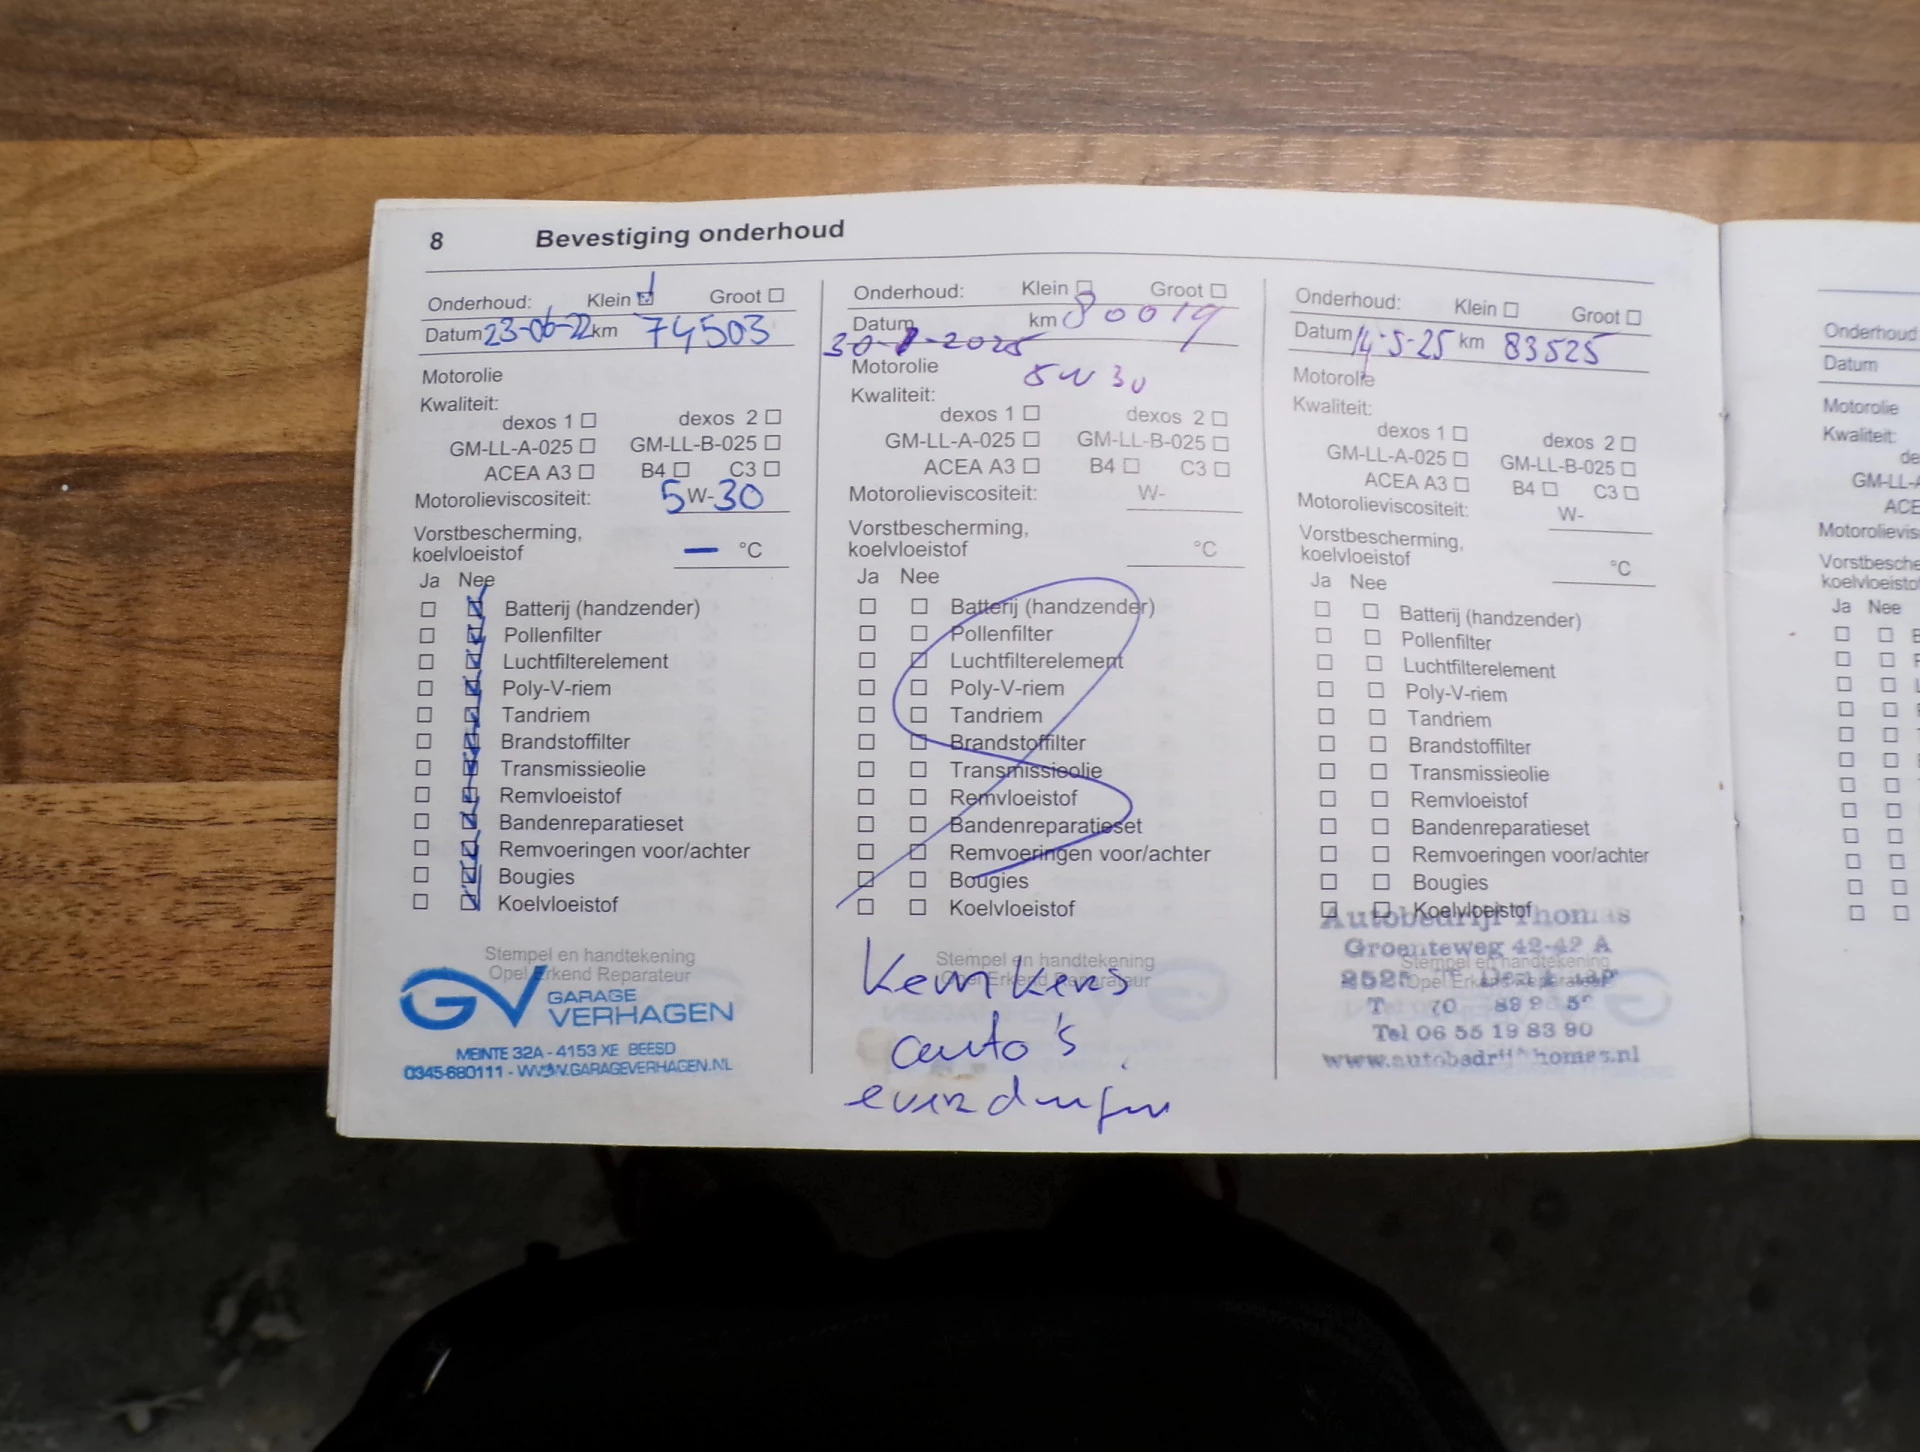 8 Bevestiging onderhoud
Onderhoud: Klein Groot
Datum 23-06-22 km 74503
Motorolie
Kwaliteit:
dexos 1 dexos 2
GM-LL-A-025 GM-LL-B-025
ACEA A3 B4 C3
Motorolieviscositeit: 5W-30
Vorstbescherming,
koelvloeistof — °C
Ja Nee
Batterij (handzender)
Pollenfilter
Luchtfilterelement
Poly-V-riem
Tandriem
Brandstoffilter
Transmissieolie
Remvloeistof
Bandenreparatieset
Remvoeringen voor/achter
Bougies
Koelvloeistof
Stempel en handtekening
Opel Erkend Reparateur
GV GARAGE
VERHAGEN
MEINTE 32A - 4153 XE BEESD
0345-680111 - WWW.GARAGEVERHAGEN.NL
Onderhoud: Klein Groot
Datum km 80019
30- -2025
Motorolie 5W30
Kwaliteit:
dexos 1 dexos 2
GM-LL-A-025 GM-LL-B-025
ACEA A3 B4 C3
Motorolieviscositeit: W-
Vorstbescherming,
koelvloeistof °C
Ja Nee
Batterij (handzender)
Pollenfilter
Luchtfilterelement
Poly-V-riem
Tandriem
Brandstoffilter
Transmissieolie
Remvloeistof
Bandenreparatieset
Remvoeringen voor/achter
Bougies
Koelvloeistof
Stempel en handtekening
Opel Erkend Reparateur
Kemkers
auto's
everdingen
Onderhoud: Klein Groot
Datum 14-5-25 km 83525
Motorolie
Kwaliteit:
dexos 1 dexos 2
GM-LL-A-025 GM-LL-B-025
ACEA A3 B4 C3
Motorolieviscositeit: W-
Vorstbescherming,
koelvloeistof °C
Ja Nee
Batterij (handzender)
Pollenfilter
Luchtfilterelement
Poly-V-riem
Tandriem
Brandstoffilter
Transmissieolie
Remvloeistof
Bandenreparatieset
Remvoeringen voor/achter
Bougies
Koelvloeistof
Autobedrijf Thomas
Groenteweg 42-42 A
Stempel en handtekening
Opel Erkend Reparateur
Tel 06 55 19 83 90
www.autobedrijfthomas.nl
Onderhoud
Datum
Motorolie
Kwaliteit:
de
GM-LL-A
ACE
Motorolievis
Vorstbesche
koelvloeisto
Ja Nee